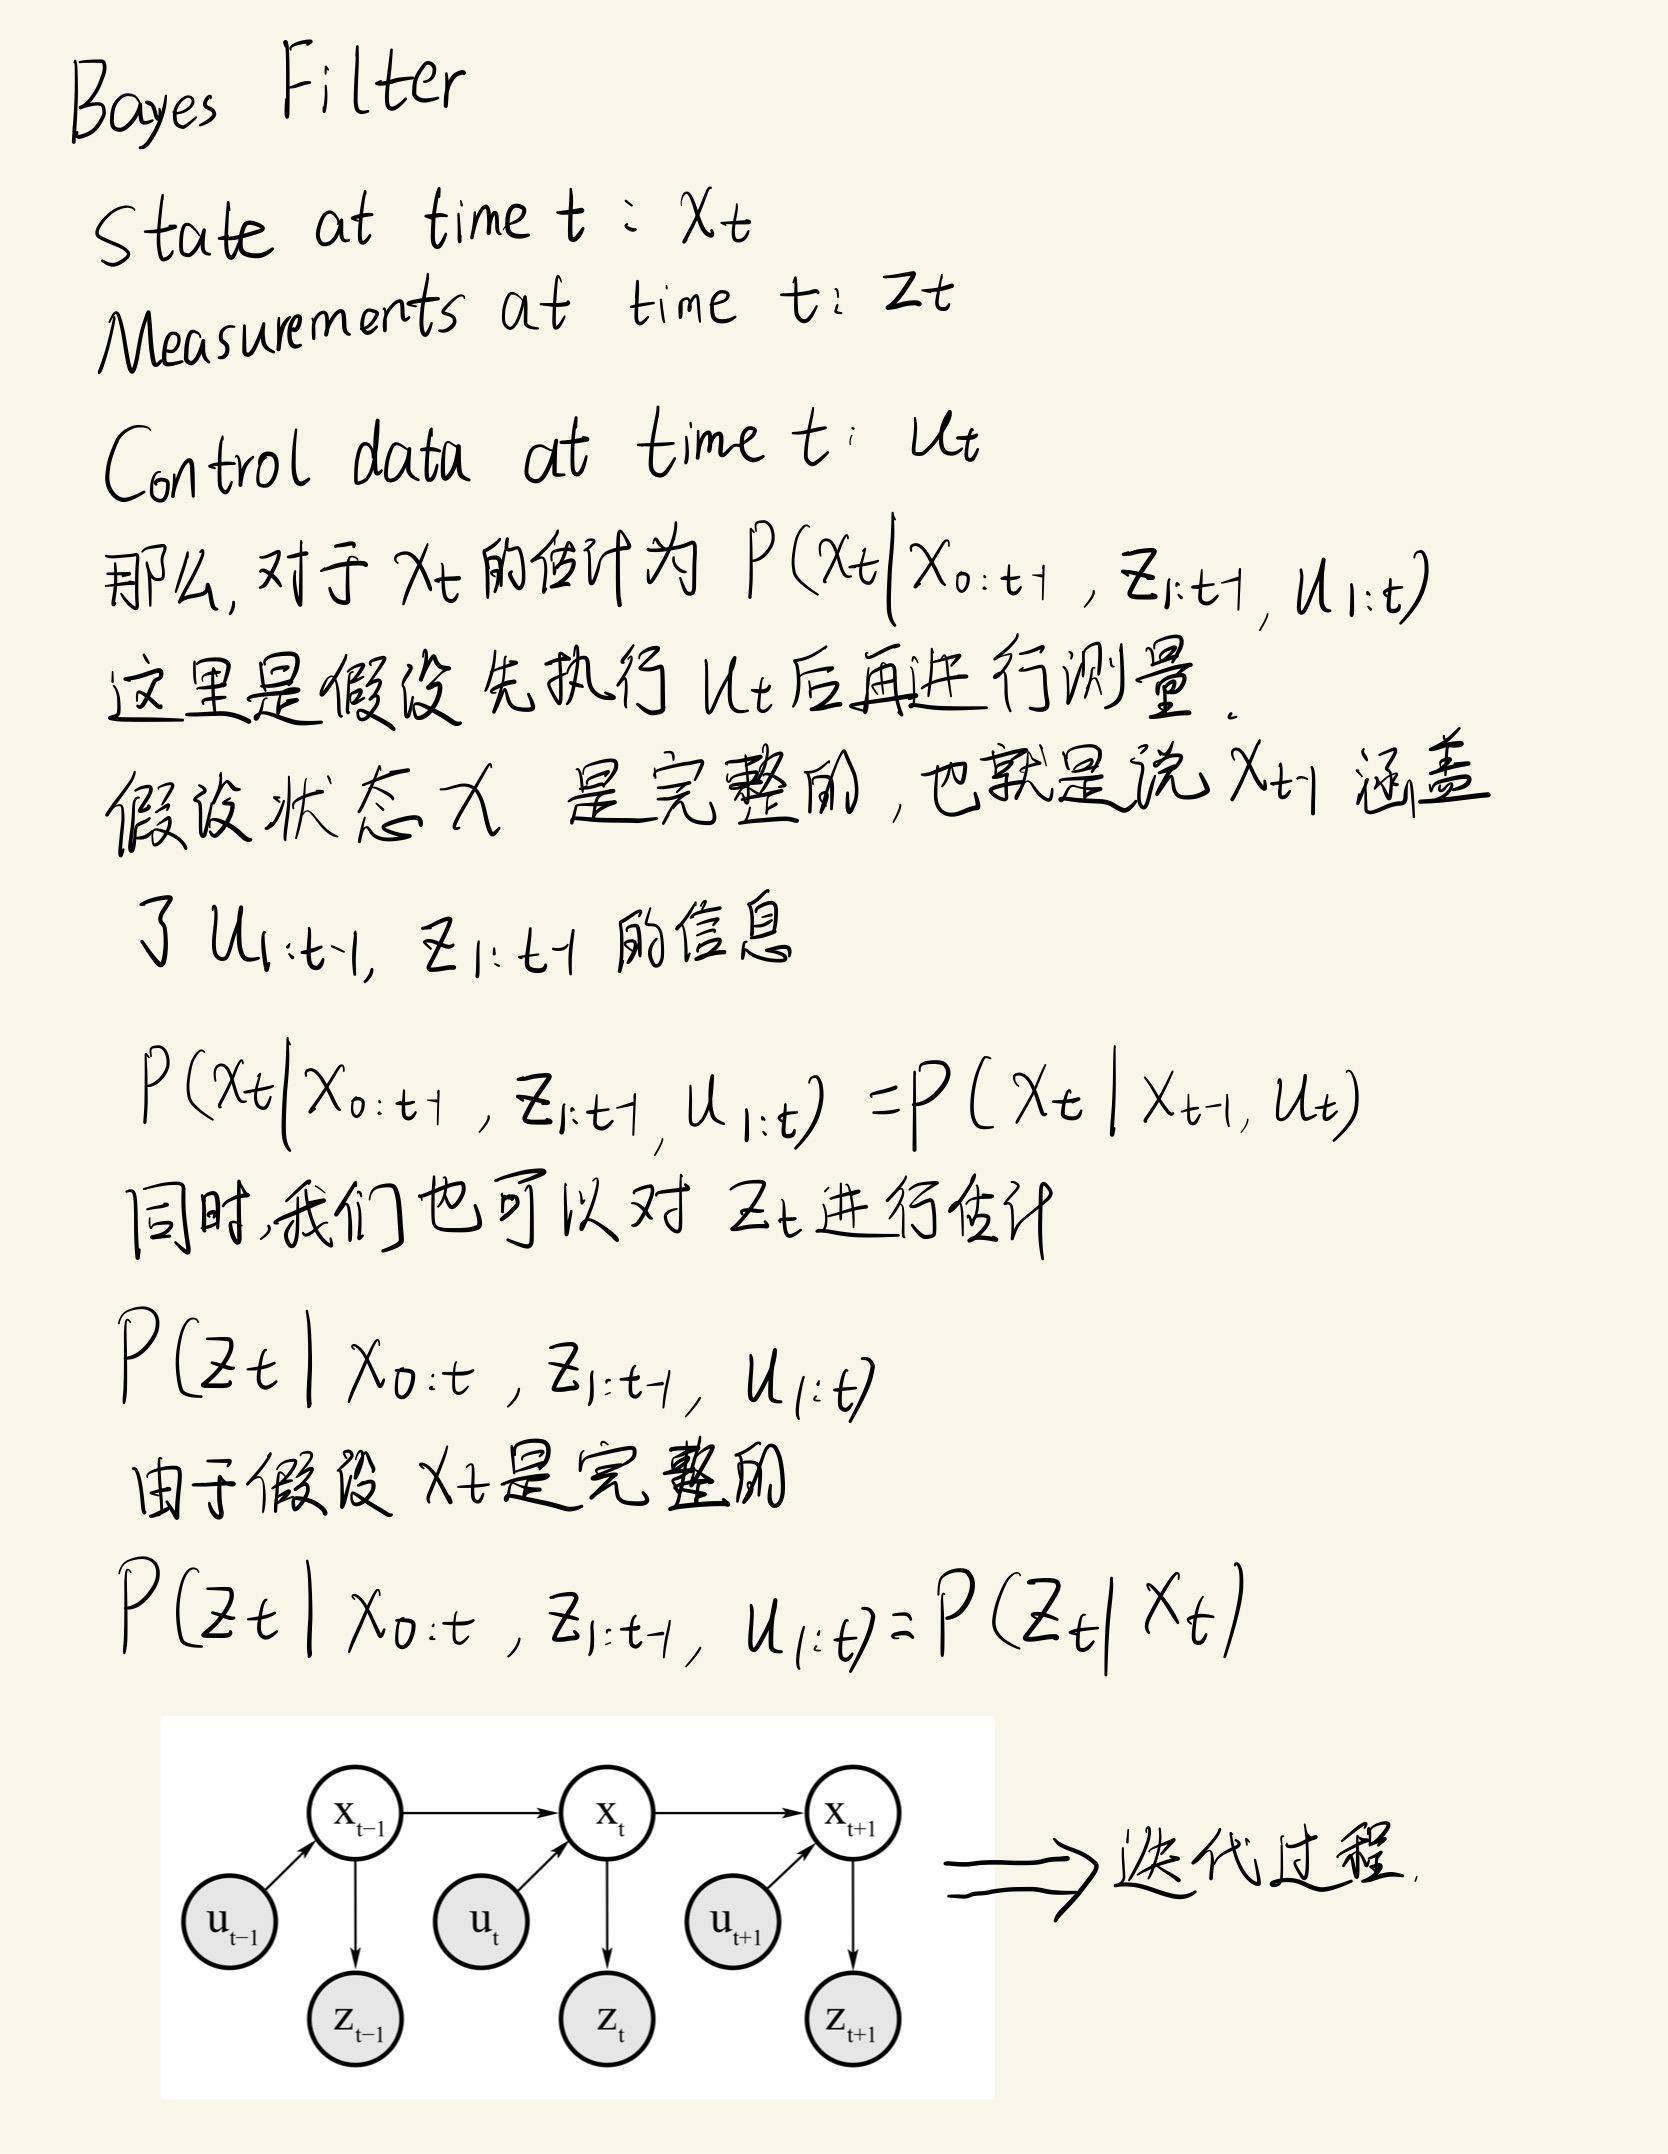 Bayes Filter
State at time t : xt
Measurements at time t: zt
Control data at time t: ut
那么, 对于 xt 的估计为 P(xt|x0:t-1, z1:t-1, u1:t)
这里是假设先执行 ut 后再进行测量.
假设状态 x 是完整的, 也就是说 xt-1 涵盖
了 u1:t-1, z1:t-1 的信息
P(xt|x0:t-1, z1:t-1, u1:t) = P(xt|xt-1, ut)
同时,我们也可以对 zt 进行估计
P(zt|x0:t, z1:t-1, u1:t)
由于假设 xt 是完整的
P(zt|x0:t, z1:t-1, u1:t) = P(zt|xt)
xt−1 xt xt+1
迭代过程.
ut−1 ut ut+1
zt−1 zt zt+1